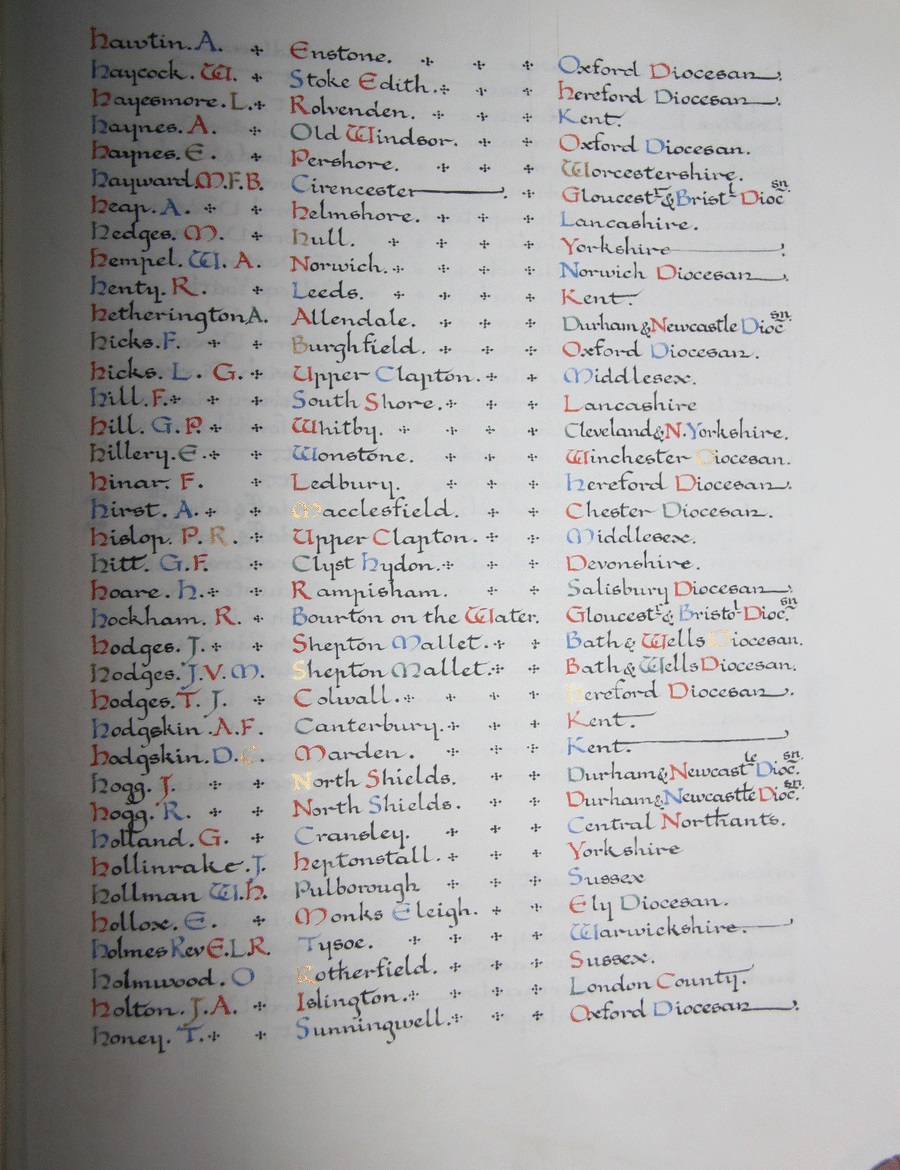 Hawtin. A. Enstone. Oxford Diocesan.
Haycock. W. Stoke Edith. Hereford Diocesan.
Hayesmore. L. Rolvenden. Kent.
Haynes. A. Old Windsor. Oxford Diocesan.
Haynes. E. Pershore. Worcestershire.
Hayward M.F.B. Cirencester. Gloucest^r & Brist^l Dioc^sn.
Heap. A. Helmshore. Lancashire.
Hedges. M. Hull. Yorkshire.
Hempel. W. A. Norwich. Norwich Diocesan.
Henty. R. Leeds. Kent.
Hetherington A. Allendale. Durham & Newcastle Dioc^sn.
Hicks. F. Burghfield. Oxford Diocesan.
Hicks. L. G. Upper Clapton. Middlesex.
Hill. F. South Shore. Lancashire
Hill. G. P. Whitby. Cleveland & N. Yorkshire.
Hillery. E. Wonstone. Winchester Diocesan.
Hinar. F. Ledbury. Hereford Diocesan.
Hirst. A. Macclesfield. Chester Diocesan.
Hislop. P. R. Upper Clapton. Middlesex.
Hitt. G. F. Clyst Hydon. Devonshire.
Hoare. H. Rampisham. Salisbury Diocesan.
Hockham. R. Bourton on the Water. Gloucest^r & Bristo^l Dioc^sn.
Hodges. J. Shepton Mallet. Bath & Wells Diocesan.
Hodges. J. V. M. Shepton Mallet. Bath & Wells Diocesan.
Hodges. T. J. Colwall. Hereford Diocesan.
Hodgskin. A. F. Canterbury. Kent.
Hodgskin. D. C. Marden. Kent.
Hogg. J. North Shields. Durham & Newcast^le Dioc^sn.
Hogg. R. North Shields. Durham & Newcastle Dioc^sn.
Holland. G. Cransley. Central Northants.
Hollinrake. J. Heptonstall. Yorkshire
Hollman W. H. Pulborough Sussex
Hollox. E. Monks Eleigh. Ely Diocesan.
Holmes Rev E. L. R. Tysoe. Warwickshire.
Holmwood. O Rotherfield. Sussex.
Holton. J. A. Islington. London County.
Honey. T. Sunningwell. Oxford Diocesan.